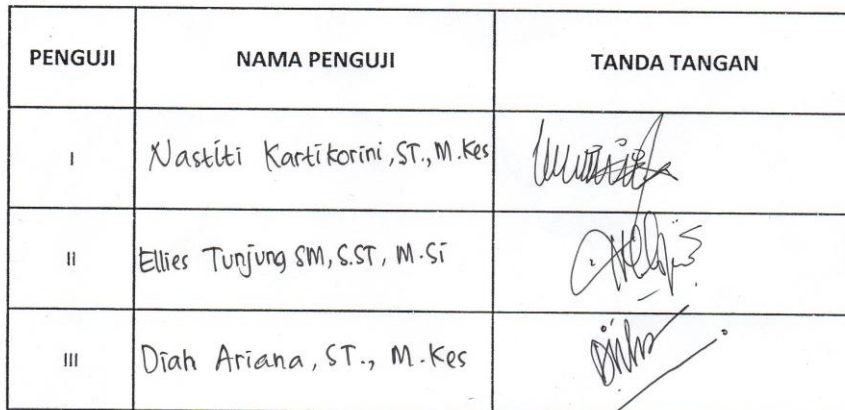 PENGUJI NAMA PENGUJI TANDA TANGAN
I Nastiti Kartikorini, ST., M.Kes
II Ellies Tunjung SM, S.ST, M.Si
III Diah Ariana, ST., M.Kes